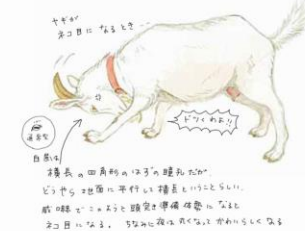 ヤギが
ネコ目に なるとき…
ドツくわよ!!
通常型
白黒は
横長の四角形のはずの瞳孔だが、
どうやら地面に平行して横長ということらしい。
威嚇でこのような頭突き準備体勢になると
ネコ目になる。ちなみに夜は丸くなってかわいらしくなる